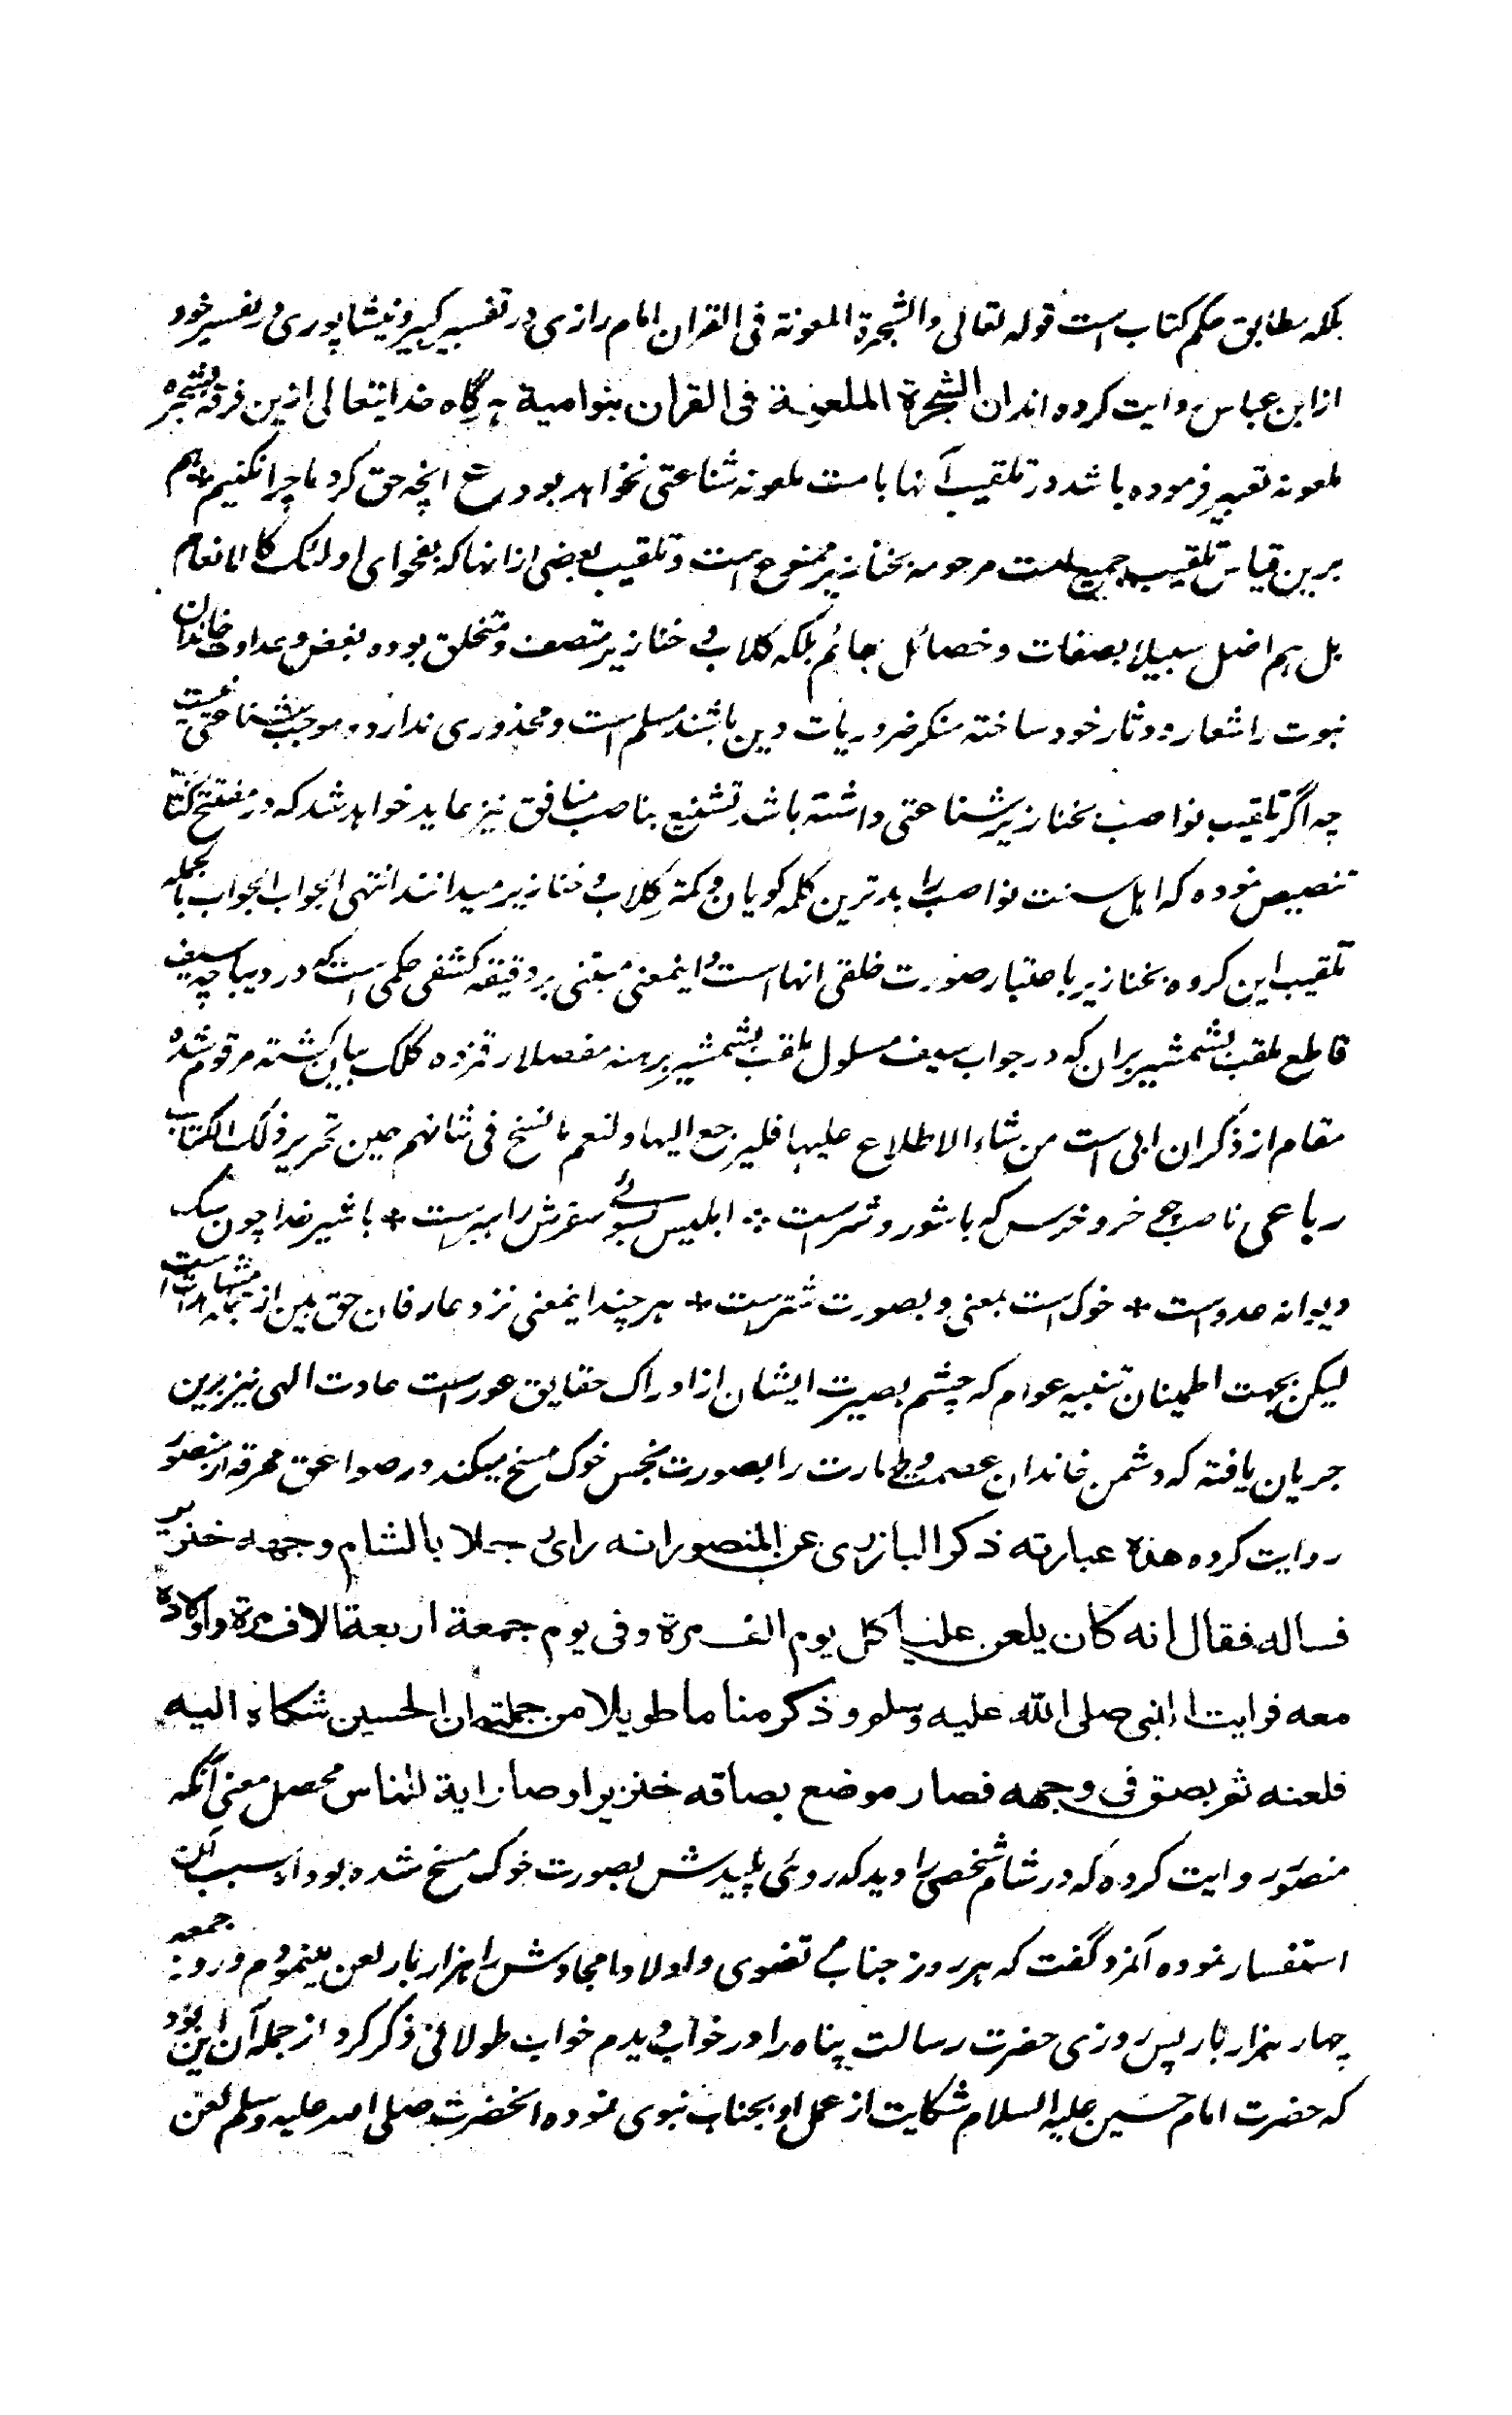 بلکه مطابق حکم کتاب است قوله تعالی والشجرة الملعونة فی القران امام رازی در تفسیر کبیر و نیشاپوری در تفسیر خود
از ابن عباس روایت کرده اند ان الشجرة الملعونة فی القران بنوامیة هرگاه خدایتعالی ازین فرقه بشجره
ملعونه تعبیر فرموده باشد در تلقیب آنها بامت ملعونه شناعتی نخواهد بود ع انچه حق کرد ما چرا نکنیم * هم
برین قیاس تلقیب جمیع امت مرحومه بخنازیر ممنوع است و تلقیب بعضی ازانها که بفحوای اولئک کالانعام
بل هم اضل سبیلا بصفات و خصائل بهائم بلکه کلاب و خنازیر متصف و متخلق بوده بغض و عداوت خاندان
نبوت را شعار و دثار خود ساخته منکر ضروریات دین باشند مسلم است و محذوری ندارد و موجب شناعتی نیست
چه اگر تلقیب نواصب بخنازیر شناعتی داشته باشد تشنیع بناصب منافق نیز عاید خواهد شد که در مفتتح کتاب
تنصیص نموده که اهل سنت نواصب را بدترین کلمه گویان و کمتر کلاب و خنازیر میدانند انتهی الجواب الجواب بالجمله
تلقیب این گروه بخنازیر باعتبار صورت خلقی انها است و اینمعنی مبتنی بر دقیقه کشفی حکمی است که در دیباچه سیف
قاطع ملقب بشمشیر بران که در جواب سیف مسلول ملقب بشمشیر برهنه مفصلا رقمزده کلک بیان گشته مرقوم شده
مقام از ذکر ان ابی است من شاء الاطلاع علیها فلیرجع الیها و لنعم ما سنخ فی شانهم حین تحریر ذلک الکتاب
رباعی ناصب خر و خرس که با شور و شر است * ابلیس بسوئے سقرش راهبر است * با شیر خدا چون سگ
دیوانه عدو است * خوک است بمعنی و بصورت شتر است * هر چند اینمعنی نزد عارفان حق بین از مشاهدات است
لیکن بجهت اطمینان تنبیه عوام که چشم بصیرت ایشان از ادراک حقایق عور است عادت الهی نیز برین
جریان یافته که دشمن خاندان عصمت و طهارت را بصورت نجس خوک مسخ میکند در صواعق محرقه از منصور
روایت کرده هذه عبارته ذکر البازری عن المنصور انه رای رجلا بالشام وجهه خنزیر
فساله فقال انه کان یلعن علیا کل یوم الف مرة و فی یوم جمعة اربعة الاف مرة و اولاده
معه فرایت النبی صلی الله علیه وسلم و ذکر مناما طویلا من جملته ان الحسین شکاه الیه
فلعنه ثم بصق فی وجهه فصار موضع بصاقه خنزیرا و صار اية للناس محصل معنی آنکه
منصور روایت کرده که در شام شخصی را دید که روی پلیدش بصورت خوک مسخ شده بود از سبب آن
استفسار نموده آنمرد گفت که هر روز جناب مرتضوی و اولاد امجادش را هزار بار لعن مینمودم و روز جمعه
چهار هزار بار پس روزی حضرت رسالت پناه را در خواب دیدم خواب طولانی ذکر کرد از جمله آن این بود
که حضرت امام حسین علیه السلام شکایت از عمل او بجناب نبوی نموده انحضرت صلی الله علیه وسلم لعن